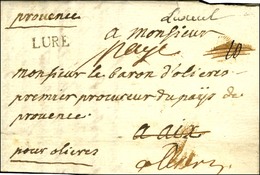 provence
Luxeuil
a monsieur
LURE
10
monsieur le baron d'olieres
premier procureur du pays de
provence
a aix
pour olieres